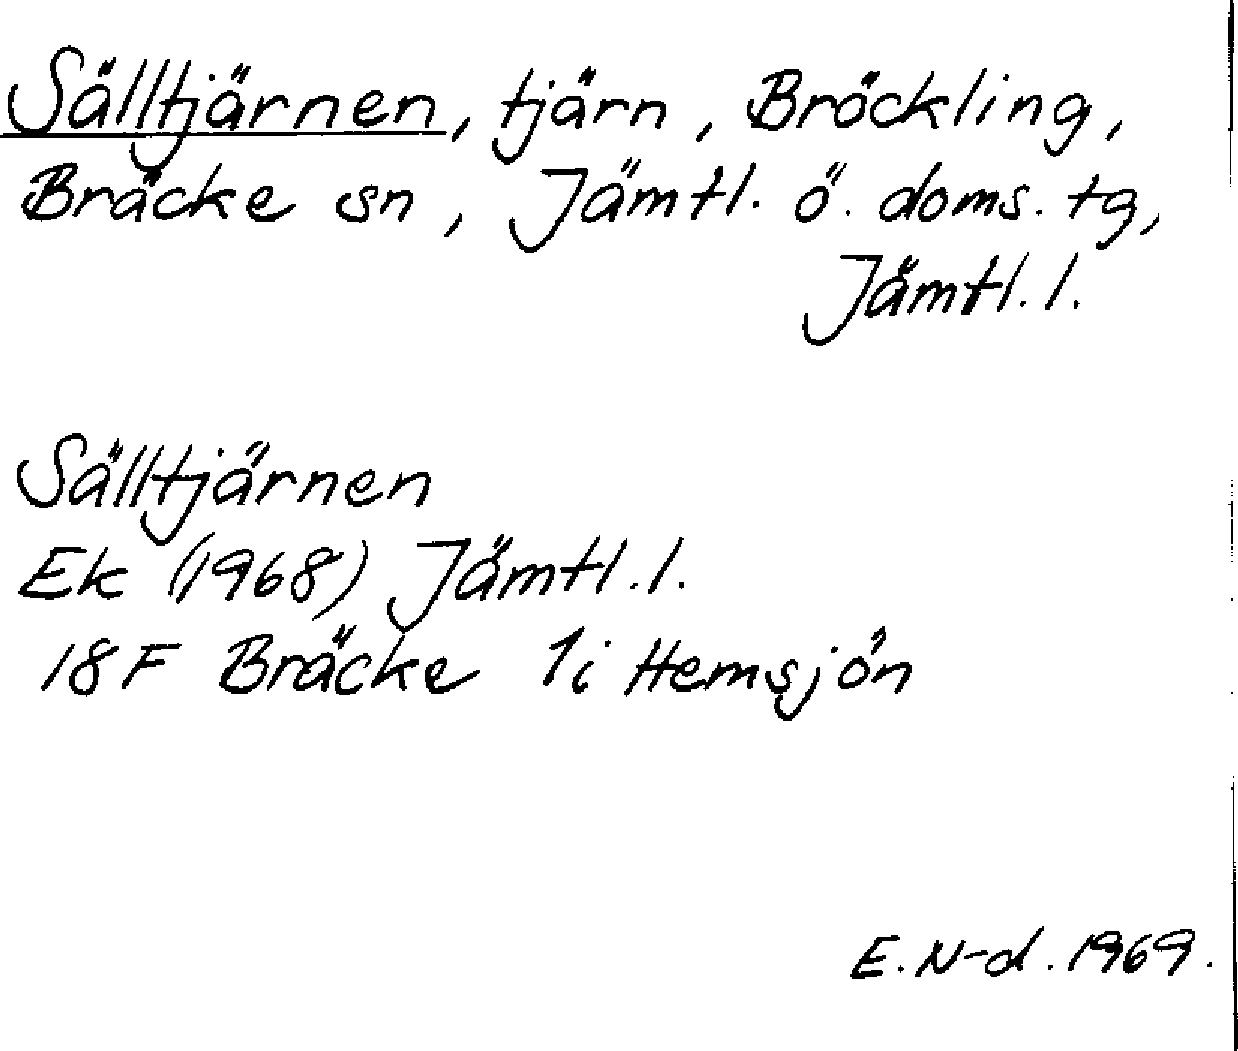 Sälltjärnen, tjärn, Bröckling,
Bräcke sn, Jämtl. ö. doms. tg,
Jämtl. l.
Sälltjärnen
Ek (1968) Jämtl. l.
18F Bräcke 1i Hemsjön
E. N-d. 1969.